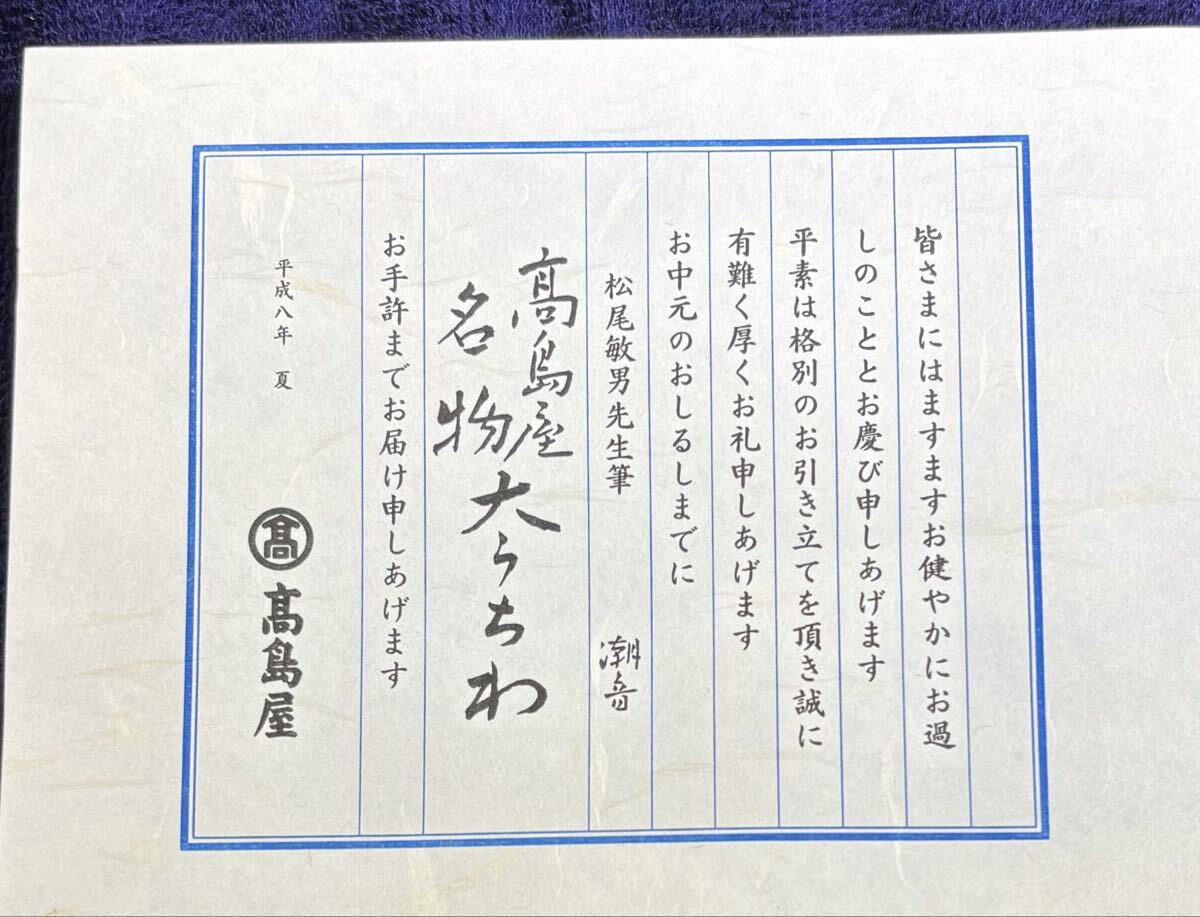 皆さまにはますますお健やかにお過
しのこととお慶び申しあげます
平素は格別のお引き立てを頂き誠に
有難く厚くお礼申しあげます
お中元のおしるしまでに
松尾敏男先生筆 潮音
髙島屋
名物
大うちわ
お手許までお届け申しあげます
平成八年 夏
髙 髙島屋